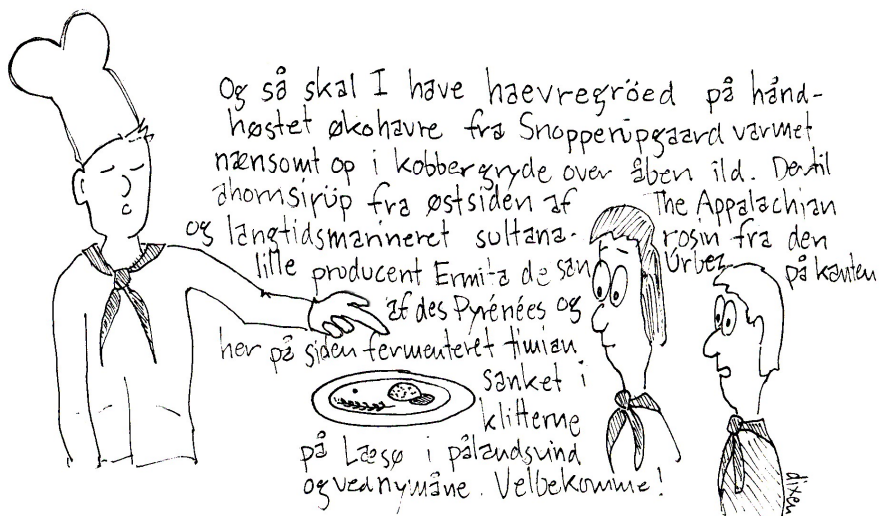 Og så skal I have haevregröed på hånd-
høstet økohavre fra Snopperupgaard varmet
nænsomt op i kobbergryde over åben ild. Dertil
ahornsirüp fra østsiden af The Appalachian
og langtidsmarineret sultana- rosin fra den
lille producent Ermita de san Úrbez på kanten
af des Pyrénées og
her på siden fermenteret timian
sanket i
klitterne
på Læsø i pålandsvind
og ved nymåne. Velbekomme!
dixen